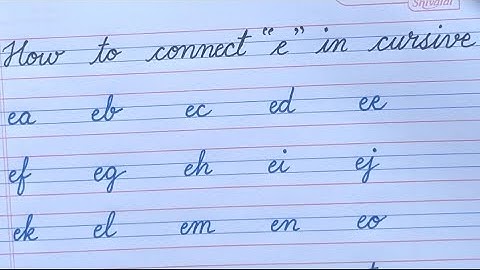 Shivalal
How to connect "e" in cursive
ea eb ec ed ee
ef eg eh ei ej
ek el em en eo